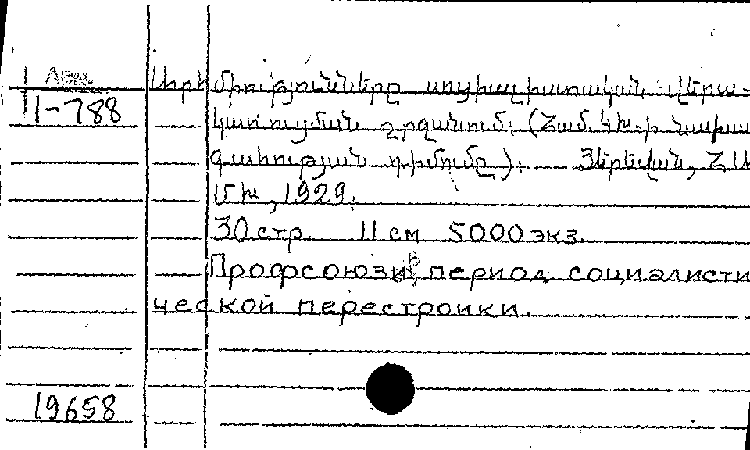 Арм.
II-788
Արհմիությունները սոցիալիստական վերա-
կառուցման շրջանում. (Համ. Կխ.ի նախա-
գահության դիմումը). Յերեվան, ՀԱ
ՄԽ, 1929.
30 стр. 11 см 5000 экз.
Профсоюзы в период социалисти
ческой перестройки.
19658